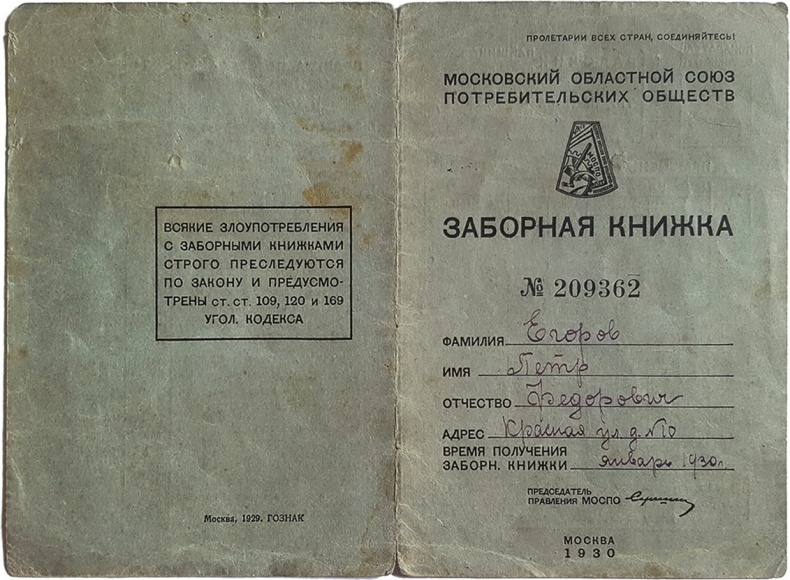 ВСЯКИЕ ЗЛОУПОТРЕБЛЕНИЯ
С ЗАБОРНЫМИ КНИЖКАМИ
СТРОГО ПРЕСЛЕДУЮТСЯ
ПО ЗАКОНУ И ПРЕДУСМО-
ТРЕНЫ СТ. СТ. 109, 120 и 169
УГОЛ. КОДЕКСА
Москва, 1929. ГОЗНАК
ПРОЛЕТАРИИ ВСЕХ СТРАН, СОЕДИНЯЙТЕСЬ!
МОСКОВСКИЙ ОБЛАСТНОЙ СОЮЗ
ПОТРЕБИТЕЛЬСКИХ ОБЩЕСТВ
МОСПО
ЗАБОРНАЯ КНИЖКА
№ 209362
ФАМИЛИЯ Егоров
ИМЯ Петр
ОТЧЕСТВО Федорович
АДРЕС Красная ул. д. №10
ВРЕМЯ ПОЛУЧЕНИЯ
ЗАБОРН. КНИЖКИ январь 1930 г.
ПРЕДСЕДАТЕЛЬ
ПРАВЛЕНИЯ МОСПО
МОСКВА
1930